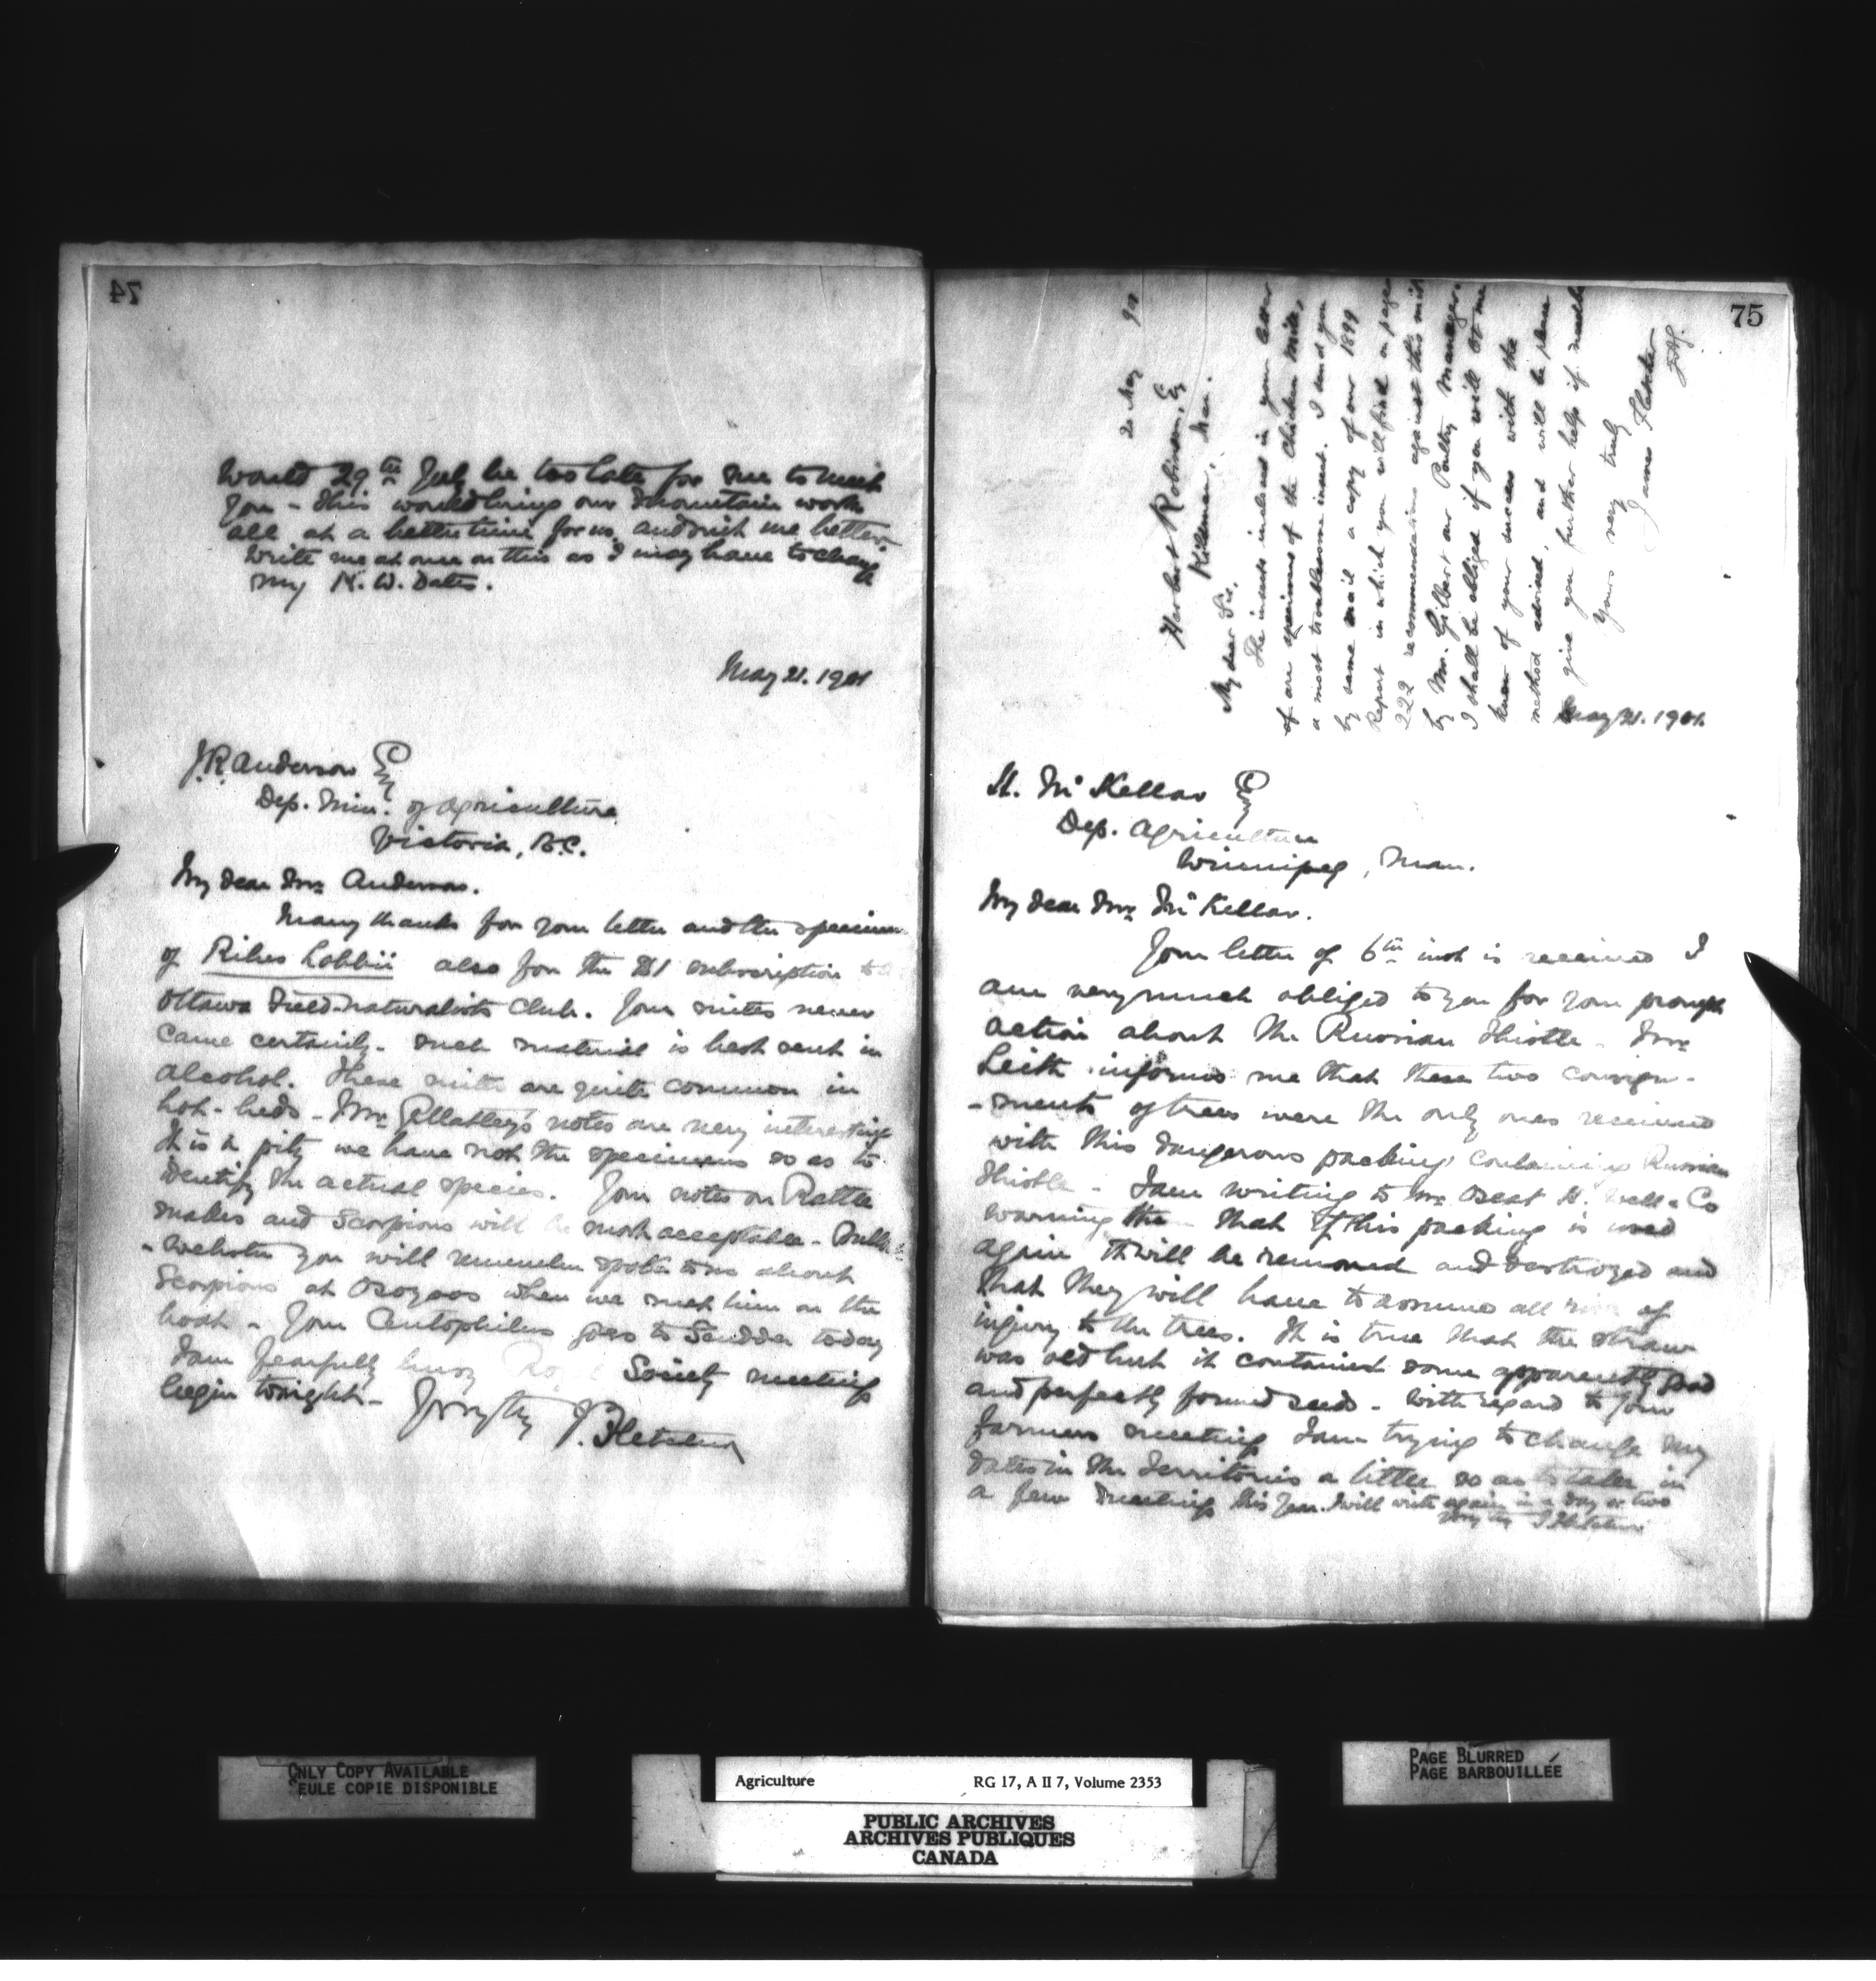 74
Would 29th July be too late for me to meet
you - This would bring our mountain work
all at a better time for us and suit me better.
Write me at once on this as I may have to change
my N. W. Dates.
May 21. 1901
J. R. Anderson Esq
Dep. Min. of Agriculture
Victoria, B.C.
My dear Mr Anderson.
Many thanks for your letter and the specimen
of Ribes Lobbii also for the $1 subscription to
Ottawa Field-naturalists Club. Your mites never
came certainly. Such material is best sent in
alcohol. These mites are quite common in
hot-beds - Mr notes are very interesting
It is a pity we have not the specimens so as to
identify the actual species. Your notes on Rattle
snakes and Scorpions will be most acceptable -
you will remember spoke to us about
Scorpions at Osoyoos when we met him on the
boat - Your Ceutophilus goes to Scudder today
I am fearfully busy Royal Society meetings
begin tonight -
J. Fletcher
75
20 May 901
Herbert Robinson, Esq
Man.
My dear Sir,
The insects inclosed in your letter
of are specimens of the Chicken mite,
a most troublesome insect. I send you
by same mail a copy of our 1899
Report in which you will find on page
222 recommendations against this mite
by Mr. Gilbert our Poultry Manager.
I shall be obliged if you will let me
know of your success with the
method advised, and will be pleased
to give you further help if needed
Yours very truly
James Fletcher
May 21. 1901.
H. McKellar Esq
Dep. Agriculture
Winnipeg, Man.
My dear Mr McKellar.
Your letter of 6th inst is received I
am very much obliged to you for your prompt
action about the Russian Thistle - Mr
Leith informs me that these two consign-
-ments of trees were the only ones received
with this dangerous packing containing Russian
Thistle - I am writing to Mr H. & Co
warning them that if this packing is used
again it will be removed and destroyed and
that they will have to assume all risk of
injury to the trees. It is true that the straw
was old but it contained some apparently good
and perfectly formed seeds - With regard to your
farmers meeting I am trying to change my
dates in the Territories a little so as to take in
a few meetings this year. I will write again in a day or two
J Fletcher
ONLY COPY AVAILABLE
SEULE COPIE DISPONIBLE
Agriculture RG 17, A II 7, Volume 2353
PUBLIC ARCHIVES
ARCHIVES PUBLIQUES
CANADA
PAGE BLURRED
PAGE BARBOUILLÉE